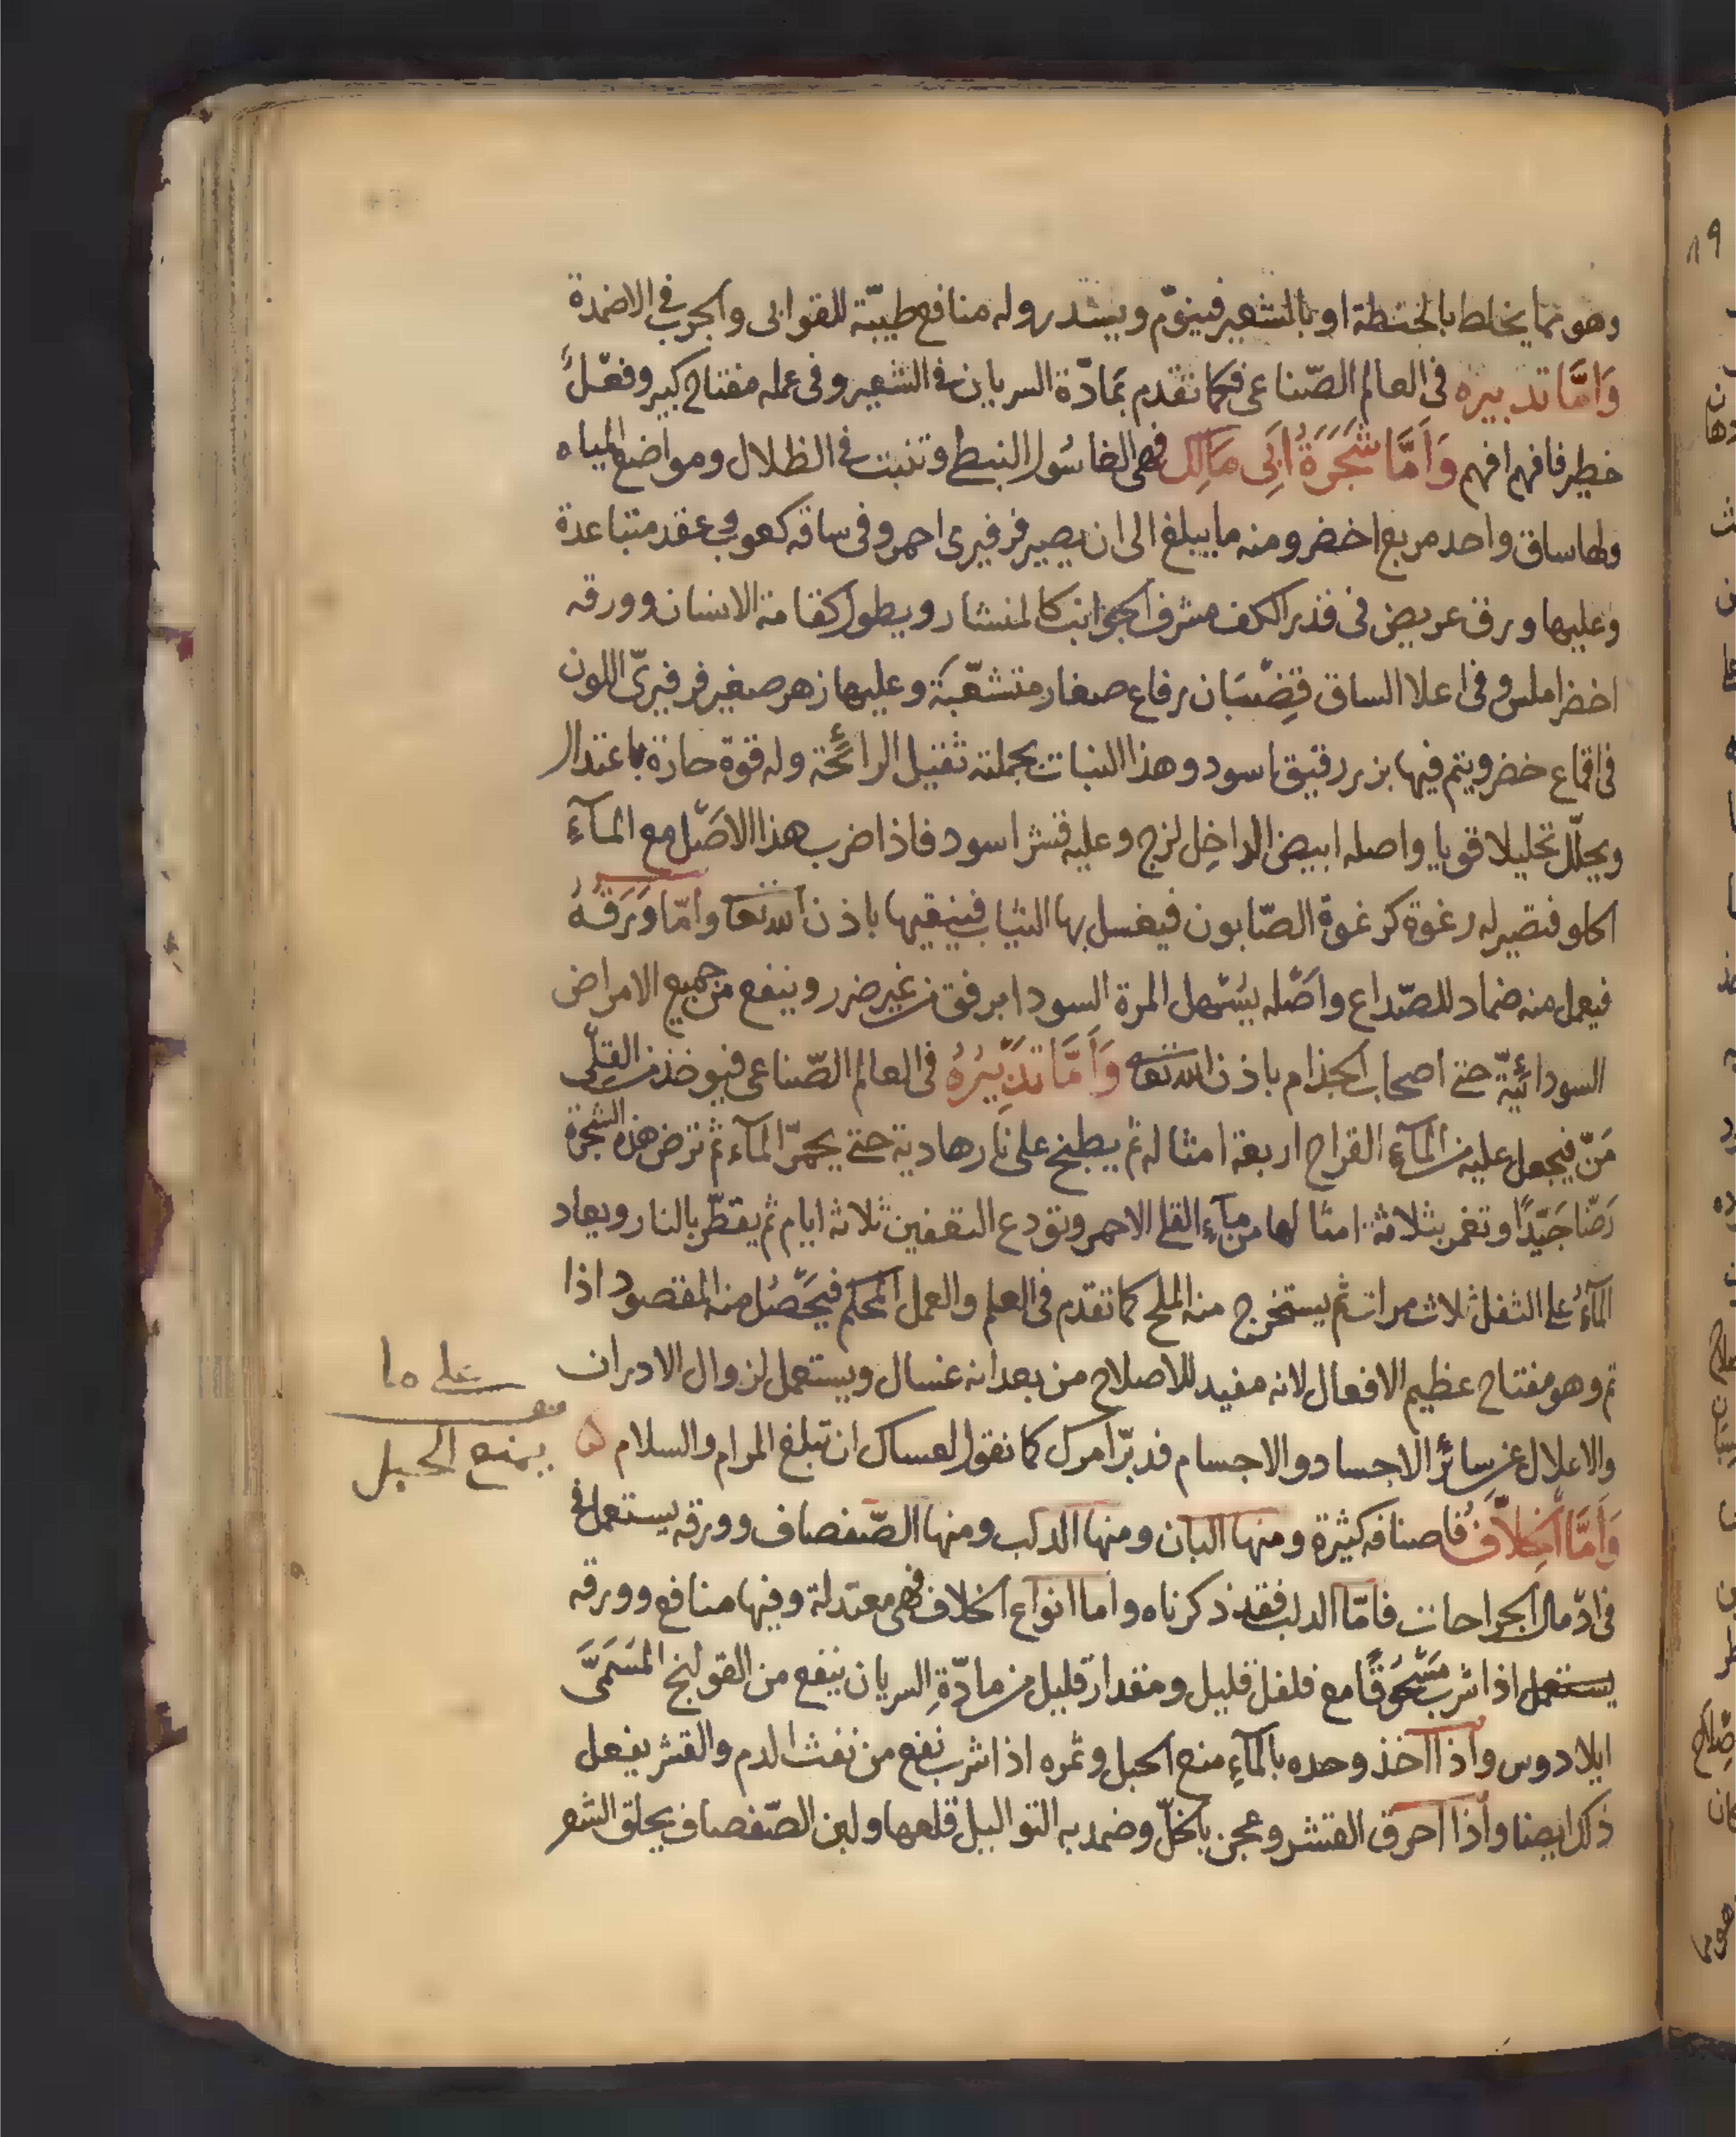 وهو مما يخلط بالحنطة او بالشعير فينوّم ويسدر وله منافع طيبّة للقوابى والجرب فى الاضمدة
وَامَّا تدبيره فى العالم الصّناعى فكما تقدم بمَادّة السريان فى الشعير وفى عمله مفتاح كبير وفعْلٌ
خطير فافهم افهم وَاَمَّا شَجَرَةُ اَبِى مَالِك فهى الغاسُول النبطى وتنبت فى الظلال ومواضع المياه
ولها ساق واحد مربع اخضر ومنه ما يبلغ الى ان يصير فرفيرى احمر وفى ساقه كعوب وعقد متباعدة
وعليها ورق عريض فى قدر الكف مشرف الجوانب كالمنشار ويطول كقامة الانسان وورقه
اخضر املس وفى اعلا الساق قضْبَان رفاع صغار متشعّبَة وعليها زهر صغير فرفيرىّ اللون
فى اقماع خضر ويتم فيها بزر رقيق اسود وهذا النبات بجملته ثقيل الرائحة وله قوة حارة باعتدال
ويحلّل تحليلا قويا واصله ابيض الداخِل لزج وعليه قشر اسود فاذا ضرب هذا الاصْل مع المآءِ
الحلو فتصير له رغوة كرغوة الصّابون فيغسل بها الثياب فينقيها باذن الله تعا وامّا وَرَقُهُ
فيعمل منه ضماد للصّداع واصْله يسْهل المرة السودا برفق من غير ضرر وينفع من جميع الامراض
السودائيّة حتى اصحاب الجذام باذن الله تعا وَاَمَّا تَدْبِيْرُهُ فى العالم الصّناعى فيوخذ من القلْى
مَنّ فيجعل عليه من المآءِ القراح اربعة امثاله ثم يطبخ على نار هادية حتى يحمرّ المآء ثم ترض هذه الشجرة
رَضّا جَيّدًا وتغمر بثلاثة امثالها من مآءِ القلى الاحمر وتودع التعفين ثلاثة ايام ثم يقطّر بالنار ويعاد
المآءُ على الثفل ثلاث مرات ثم يستخرج منه الملح كما تقدم فى العلم والعمل المحكم فيحَصُل منه المقصود اذا
تم وهو مفتاح عظيم الافعال لانه مفيد للاصلاح من بعد انه غسال ويستعمل لزوال الادران
والاعلال عن سائر الاجساد والاجسام فدبّر امرك كما نقول لعساك ان تبلغ المرام والسلام ۵
على ما
يمنع الحبل
وَاَمَّا الخِلاَّفُ فاصنافه كثيرة ومنها البان ومنها الدلب ومنها الصّفصاف وورقه يستعمل فى
فى ادّمال الجراحات فامّا الدلب فقد ذكرناه واما انواع الخلاف فهى معتدلة وفيها منافع وورقه
يستعمل اذا شرب مَسْحُوقًا مع فلفل قليل ومقدار قليل من مادّةِ السريان ينفع من القولنج المسَمىَّ
ايلادوس واذا اخذ وحده بالمآءِ منع الحبل وثمره اذا شرب نفع من نفث الدم والقشر يفعل
ذلك ايضا واذا احرق القشر وعجن بالخلّ وضمد به التواليل قلعها ولبن الصّفصاف يحلق الشعر